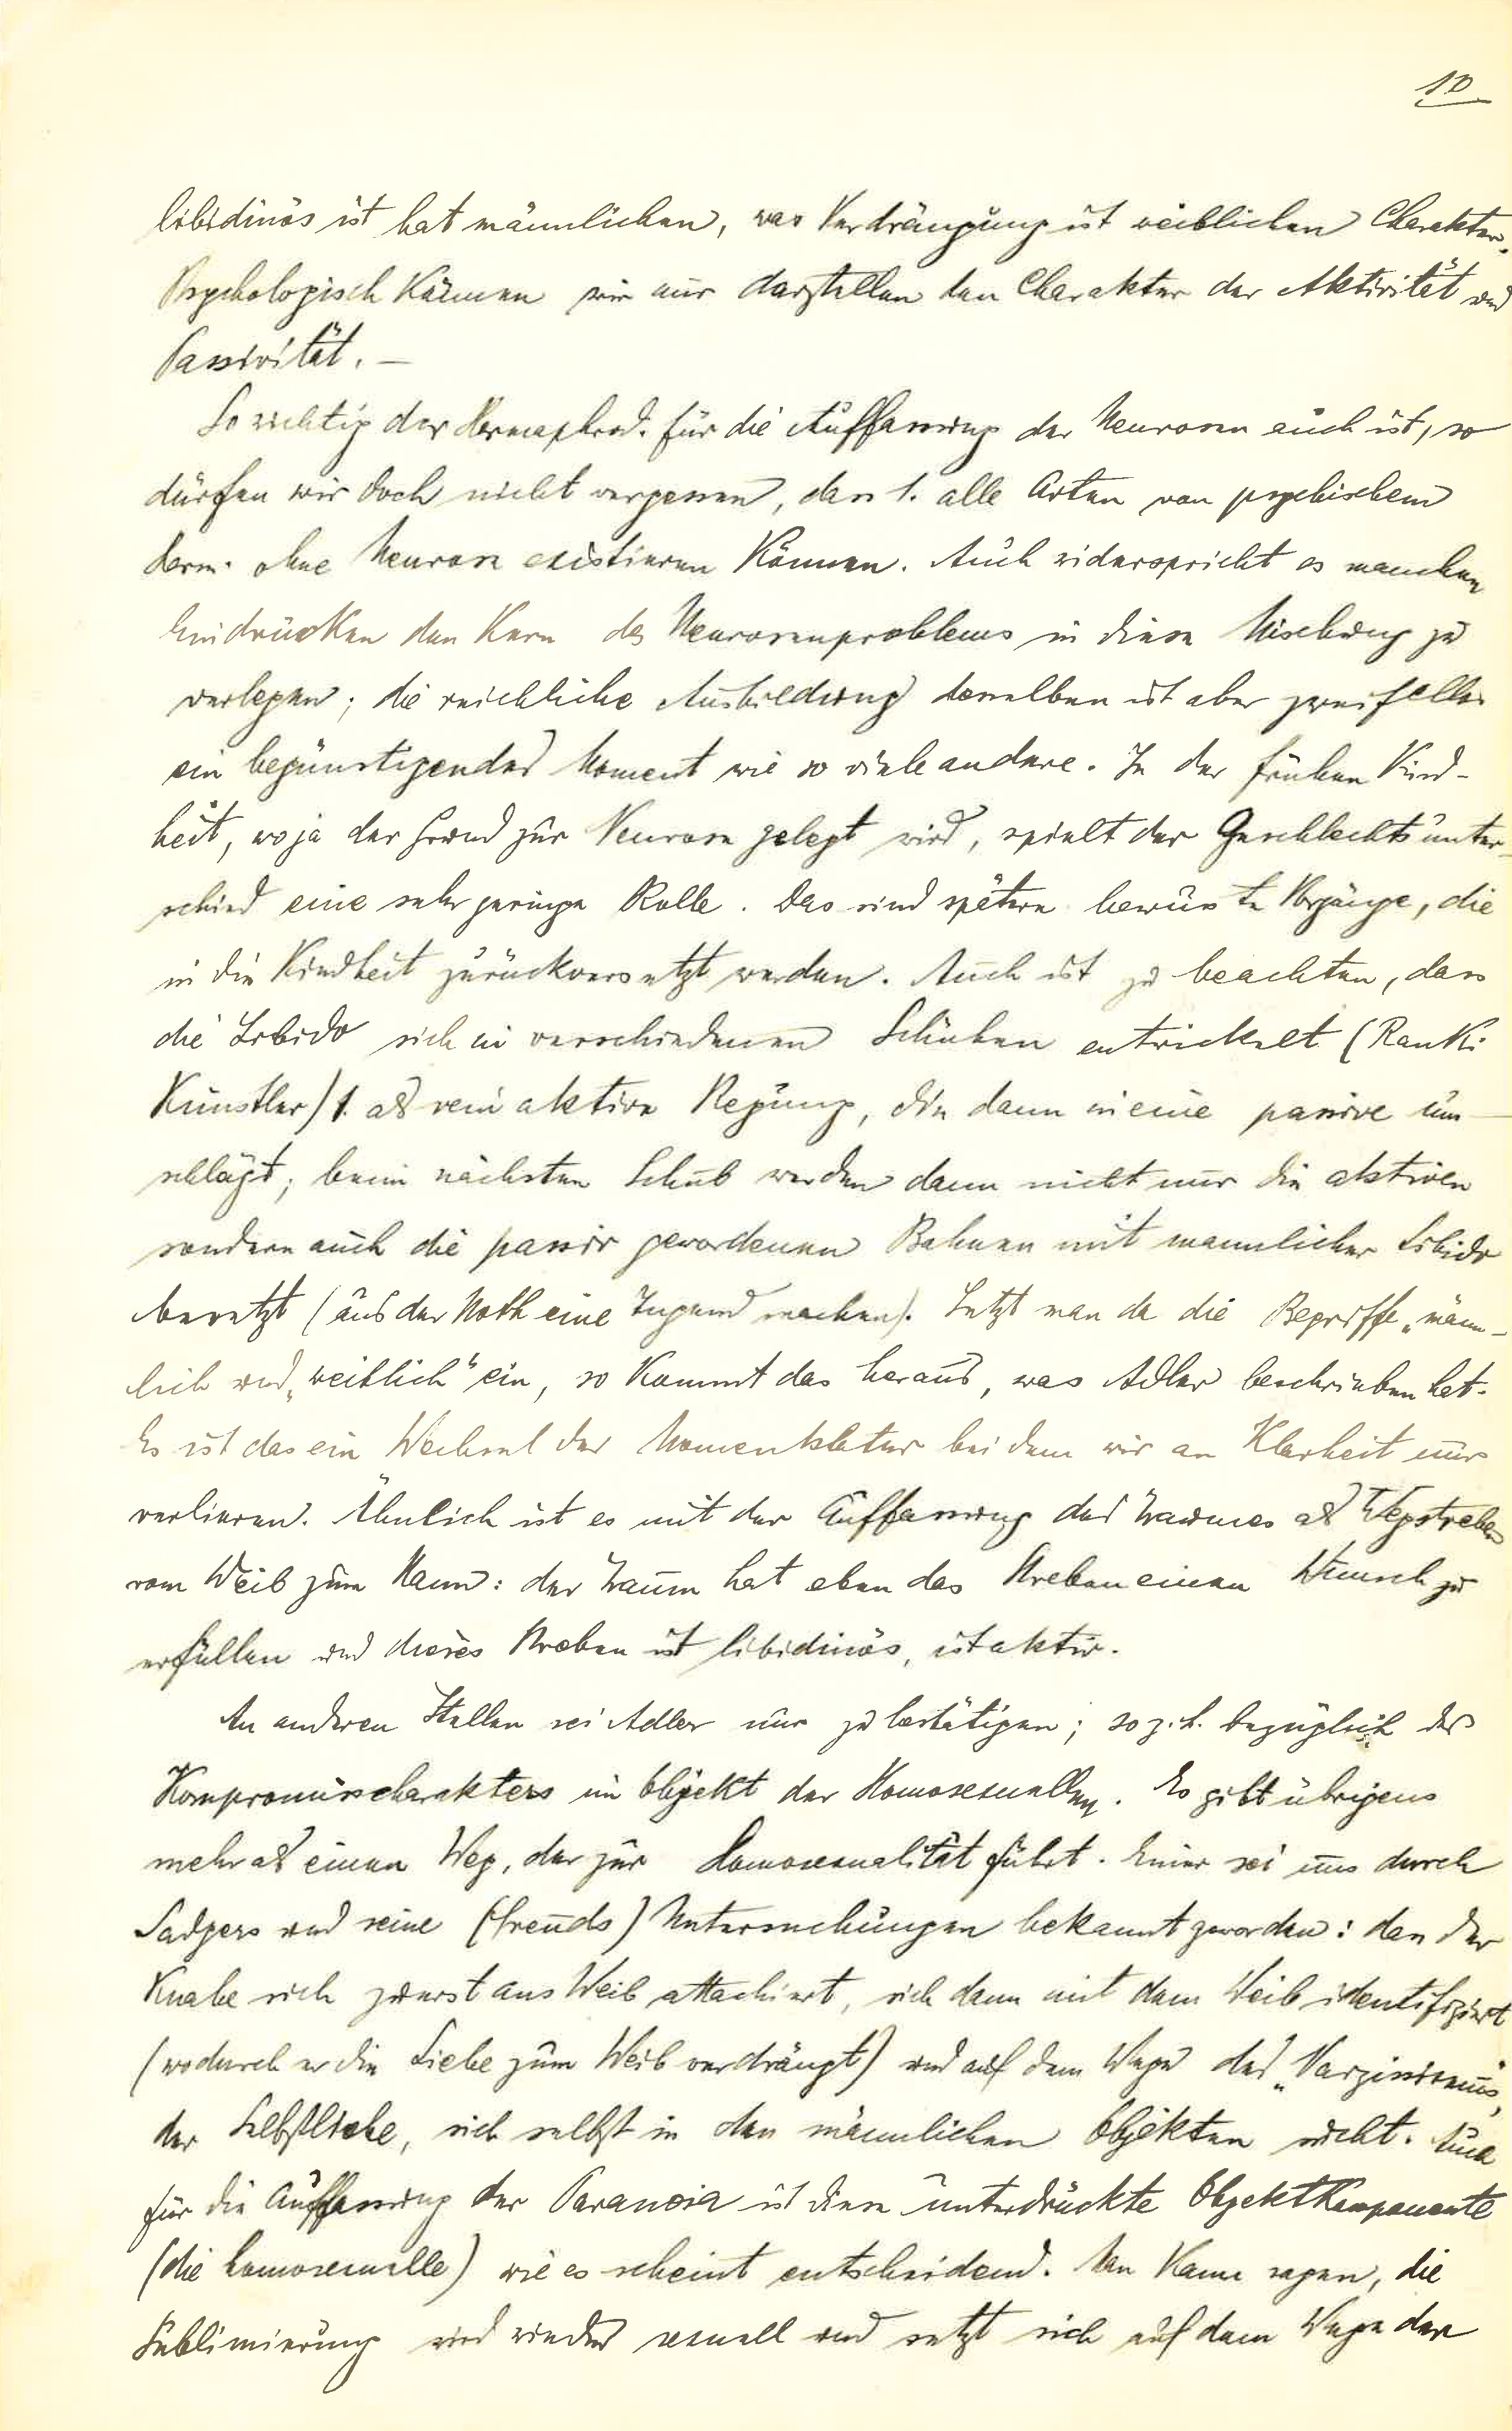 10
libidinös ist hat männlichen, was Verdrängung ist weiblichen Charakter.
Psychologisch können wir nur darstellen den Charakter der Aktivität und
Passivität. —
So wichtig der Hermaphrod. für die Auffassung der Neurosen auch ist, so
dürfen wir doch nicht vergessen, dass 1. alle Arten von psychischem
Herm. ohne Neurose existieren können. Auch widerspricht es manchen
Eindrücken den Kern des Neurosenproblems in diese Mischung zu
verlegen; die reichliche Ausbildung derselben ist aber zweifellos
ein begünstigendes Moment wie so viele andere. In der frühen Kind-
heit, wo ja der Grund zur Neurose gelegt wird, spielt der Geschlechtsunter-
schied eine sehr geringe Rolle. Das sind spätere bewusste Vorgänge, die
in die Kindheit zurückversetzt werden. Auch ist zu beachten, dass
die Libido sich in verschiedenen Schüben entwickelt (Rank:
Künstler) 1. als rein aktive Regung, die dann in eine passive um-
schlägt; beim nächsten Schub werden dann nicht nur die aktiven
sondern auch die passiv gewordenen Bahnen mit männlicher Libido
besetzt (aus der Noth eine Tugend machen). Setzt man da die Begriffe „männ-
lich und „weiblich" ein, so kommt das heraus, was Adler beschrieben hat.
Es ist das ein Wechsel der Nomenklatur bei dem wir an Klarheit nur
verlieren. Ähnlich ist es mit der Auffassung des Traumes als Wegstreben
vom Weib zum Mann: der Traum hat eben das Streben einen Wunsch zu
erfüllen und dieses Streben ist libidinös, ist aktiv.
An anderen Stellen sei Adler nur zu bestätigen; so z. b. bezüglich des
Kompromisscharakters im Objekt der Homosexuellen. Es gibt übrigens
mehr als einen Weg, der zur Homosexualität führt. Einer sei uns durch
Sadgers und seine (Freuds) Untersuchungen bekannt geworden: dass der
Knabe sich zuerst ans Weib attachiert, sich dann mit dem Weib identifiziert
(wodurch er die Liebe zum Weib verdrängt) und auf dem Wege des „Narzissismus,
der Selbstliebe, sich selbst in den männlichen Objekten sucht. Auch
für die Auffassung der Paranoia ist diese unterdrückte Objektkomponente
(die homosexuelle) wie es scheint entscheidend. Man kann sagen, die
Sublimierung wird wieder sexuell und setzt sich auf dem Wege der